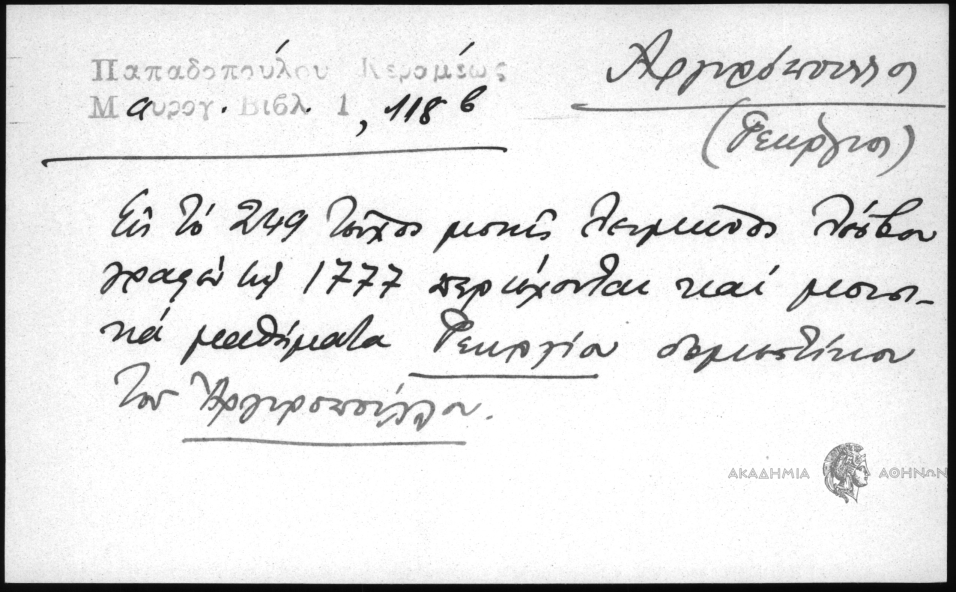 Παπαδοπούλου Κεραμέως
Μαυρογ. Βιβλ. 1, 118 β
Ἀργυρόπουλος
(Γεώργιος)
Εἰς τό 249 τεῦχος μονῆς Λειμῶνος Λέσβου
γραφὲν τῷ 1777 περιέχονται καί μουσι-
κά μαθήματα Γεωργίου
του Ἀργυροπούλου.
ΑΚΑΔΗΜΙΑ ΑΘΗΝΩΝ